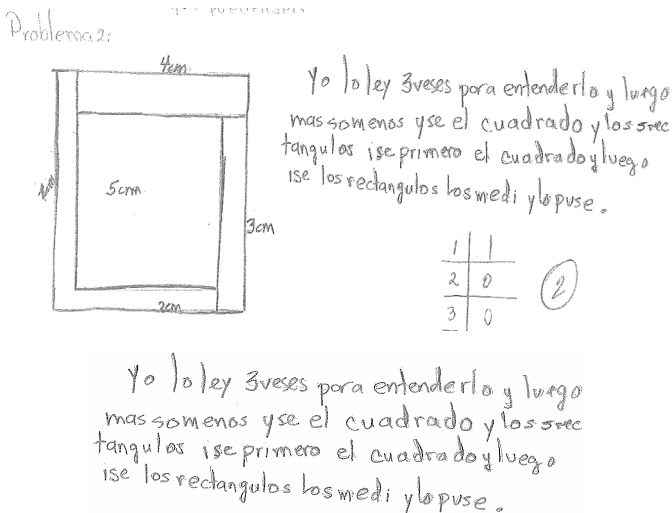 Problema 2:
4cm
Yo lo ley 3 veses para entenderlo y luego
mas somenos yse el cuadrado y los 5 rec
tangulos ise primero el cuadrado y luego
ise los rectangulos los medi y lo puse.
5cm
3cm
2cm
1 1
2 0
3 0
2
Yo lo ley 3 veses para entenderlo y luego
mas somenos yse el cuadrado y los 5 rec
tangulos ise primero el cuadrado y luego
ise los rectangulos los medi y lo puse.